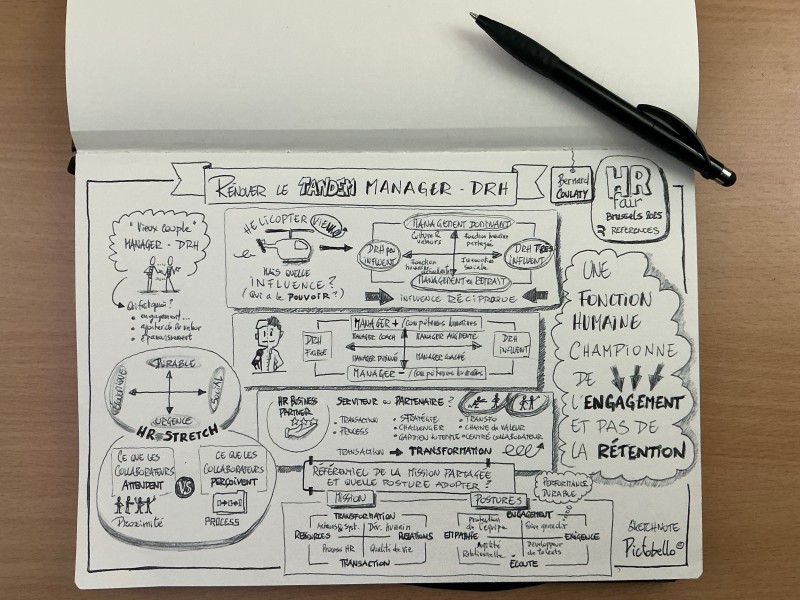 RÉNOUER LE TANDEM MANAGER - DRH
Bernard
COULATY
HR
Fair
Brussels 2025
REFERENCES
"Vieux couple"
MANAGER - DRH
engagement...
ajouter de la valeur
épanouissement
HELICOPTER VIEW
INFLUENCE ?
(Qui a le POUVOIR ?)
MANAGEMENT DOMINANT
Culture &
valeurs
fonction humaine
partagée
DRH peu
INFLUENT
DRH TRÈS
INFLUENT
fonction
humaine
Innovation
sociale
MANAGEMENT en RETRAIT
INFLUENCE RÉCIPROQUE
MANAGER + / compétences humaines
DRH
FAIBLE
MANAGER COACH
MANAGER AUGMENTÉ
DRH
INFLUENT
MANAGER COACHÉ
MANAGER - / compétences humaines
UNE
FONCTION
HUMAINE
CHAMPIONNE
DE
L'ENGAGEMENT
ET PAS DE
LA RÉTENTION
DURABLE
ÉCONOMIQUE
SOCIAL
URGENCE
HR STRETCH
CE QUE LES
COLLABORATEURS
ATTENDENT
VS
CE QUE LES
COLLABORATEURS
PERÇOIVENT
Proximité
PROCESS
HR BUSINESS
PARTNER
SERVITEUR OU PARTENAIRE ?
TRANSACTION
PROCESS
STRATÉGIE
CHALLENGER
GARDIEN DU TEMPLE
TRANSFO
CHAINE DE VALEUR
CENTRÉ COLLABORATEUR
TRANSACTION TRANSFORMATION
RÉFÉRENTIEL DE LA MISSION PARTAGÉE
ET QUELLE POSTURE ADOPTER ?
PERFORMANCE
DURABLE
MISSION
POSTURES
TRANSFORMATION
Acteurs & syst.
Dév. humain
RESSOURCES
RELATIONS
Process HR
Qualité de vie
TRANSACTION
ENGAGEMENT
Protection
de l'équipe
Faire grandir
EMPATHIE
EXIGENCE
Agilité
Relationnelle
Développeur
de talents
ÉCOUTE
SKETCHNOTE
Pictobello ©